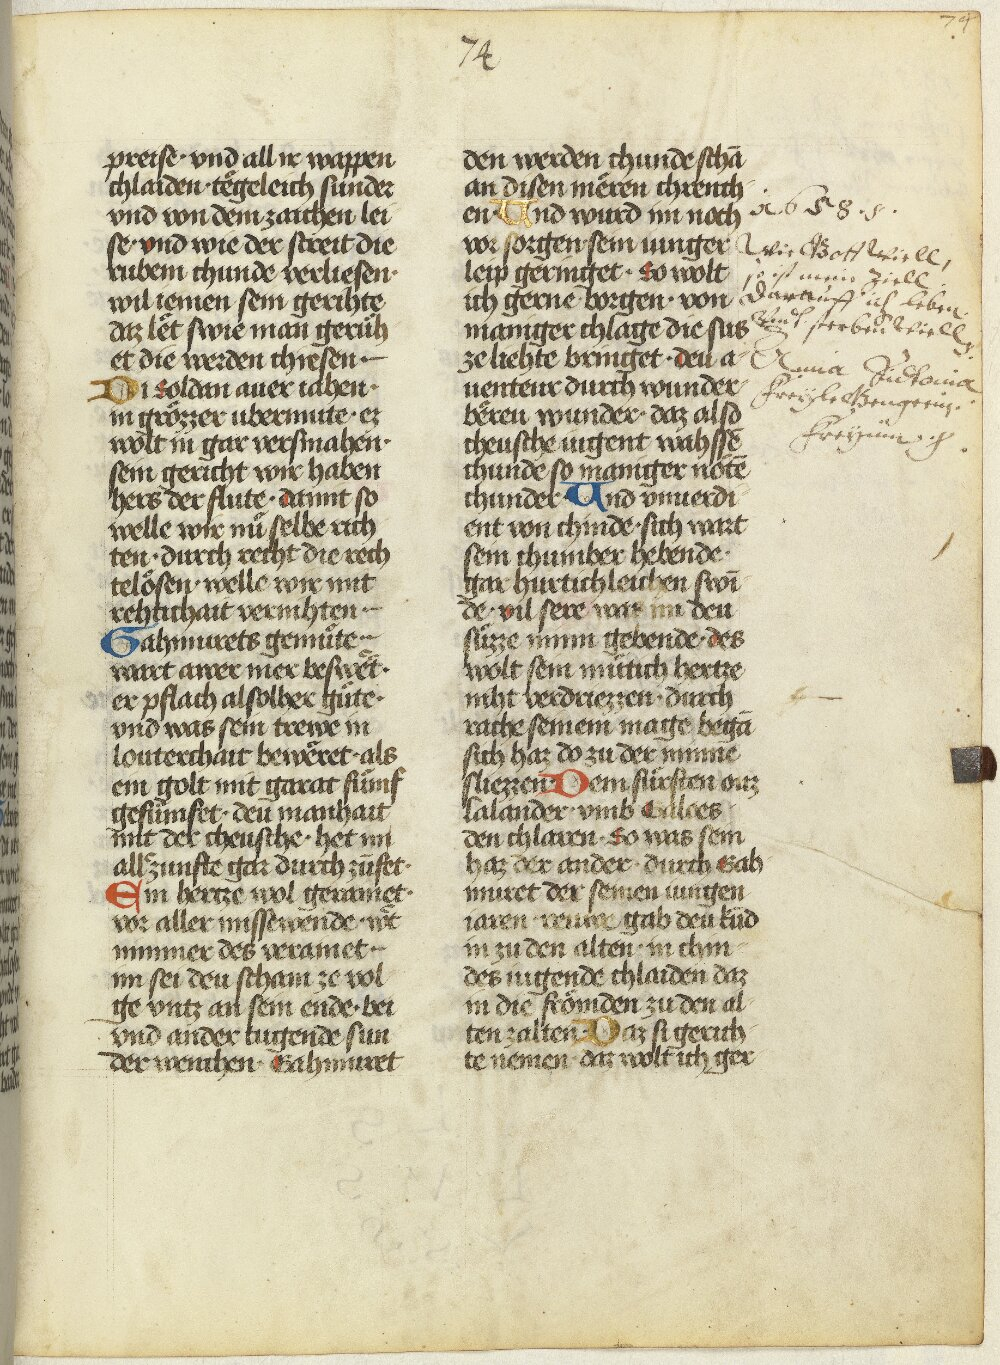 74
74
preise · vnd all ir wappen
chlaiden · tegeleich sunder
vnd von dem zaichen lei
se · vnd wie der streit die
rubein chunde verliesen ·
wil iemen sein gerihte
daz let swie man geruͦh
et die werden chiesen ·
Di soldan auer iahen ·
in grözzer vbermute · er
wolt in gar versmahen ·
sein gericht wir haben
hers der flute · damit so
welle wir nu selbe rich
ten · durch recht die rech
telösen · welle wir mit
rehtichait verrihten ·
Gahmurets gemuͤte ·
wart awer mer beswet ·
er pflach alsolher guͤte ·
vnd was sein trewe in
louterchait beweret · als
ein golt mit garat fuͤnf
gefuͤnfet · deu manhait
mit der cheusche · het im
all zunfte gar durch zuͤfet ·
Ein hertze wol geramet ·
vor aller missewende · wͤt
nimmer des veramet ·
im sei deu scham ze vol
ge vntz an sein ende · bei
vnd ander tugende sun
der wenchen · Gahmuret
den werden chunde schā
an disen meren chrench
en · Vnd wurd im noch
vor sorgen · sein iunger
leip geringet · So wolt
ich gerne borgen · von
maniger chlage die sus
ze liehte bringet · deu a
uenteur durch wunder
beren wunder · daz also
cheusche iugent wahssē
chunde so maniger nötē
chunder · Vnd vnuerdi
ent von chinde · sich wart
sein chumber hebende ·
gar hurtichleichen swi
de · vil sere was im deu
suͤzze minn gebende · des
wolt sein muͤtich hertze
niht verdriezzen · durch
rache seinem mage begā
sich haz do zu der minne
sliezzen · Dem fuͤrsten auz
Lalander · vmb Galoes
den chlaren · So was sein
haz der ander · durch Gah
muret der seinen iungen
iaren · rewe gab deu kūd
in zu den alten · in chin
des iugende chlaiden daz
in die frömden zu den al
ten zalten · Daz si geruh
te nemen · daz wolt ich ger
1658
Wie Gott Will,
so ist mein Ziell
darauff ich leben
Vnd sterben Will
Anna Sidonia
Freyin